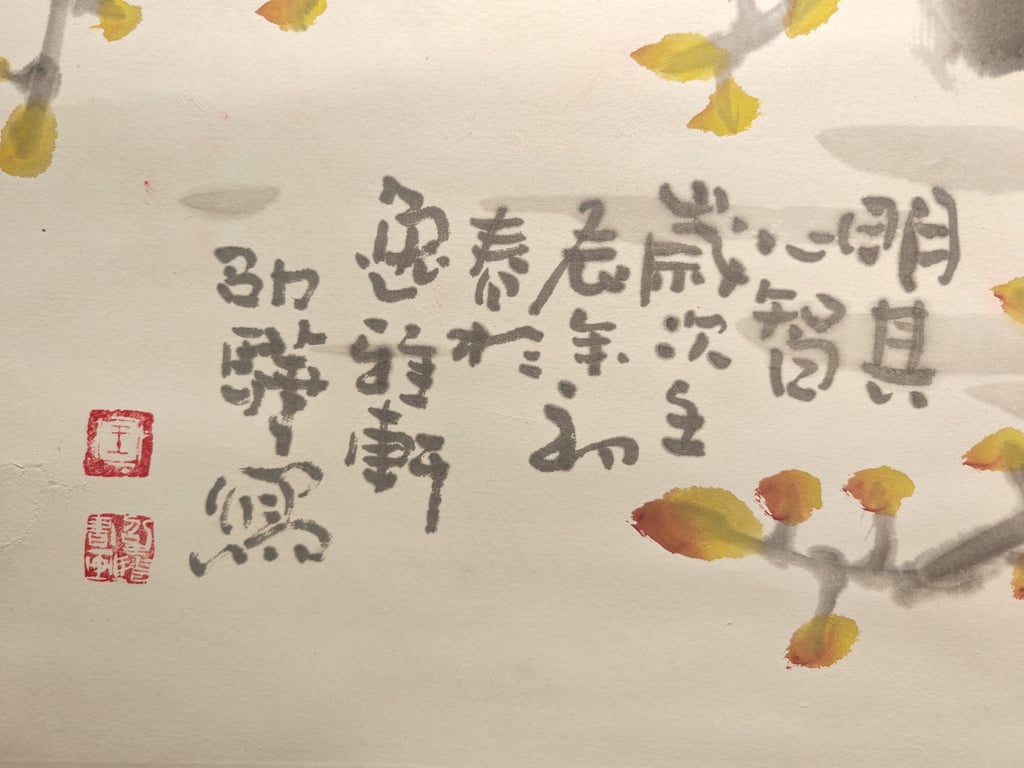 明其
心智
歲次壬
辰年初
春於
逸雅軒
劭驊寫